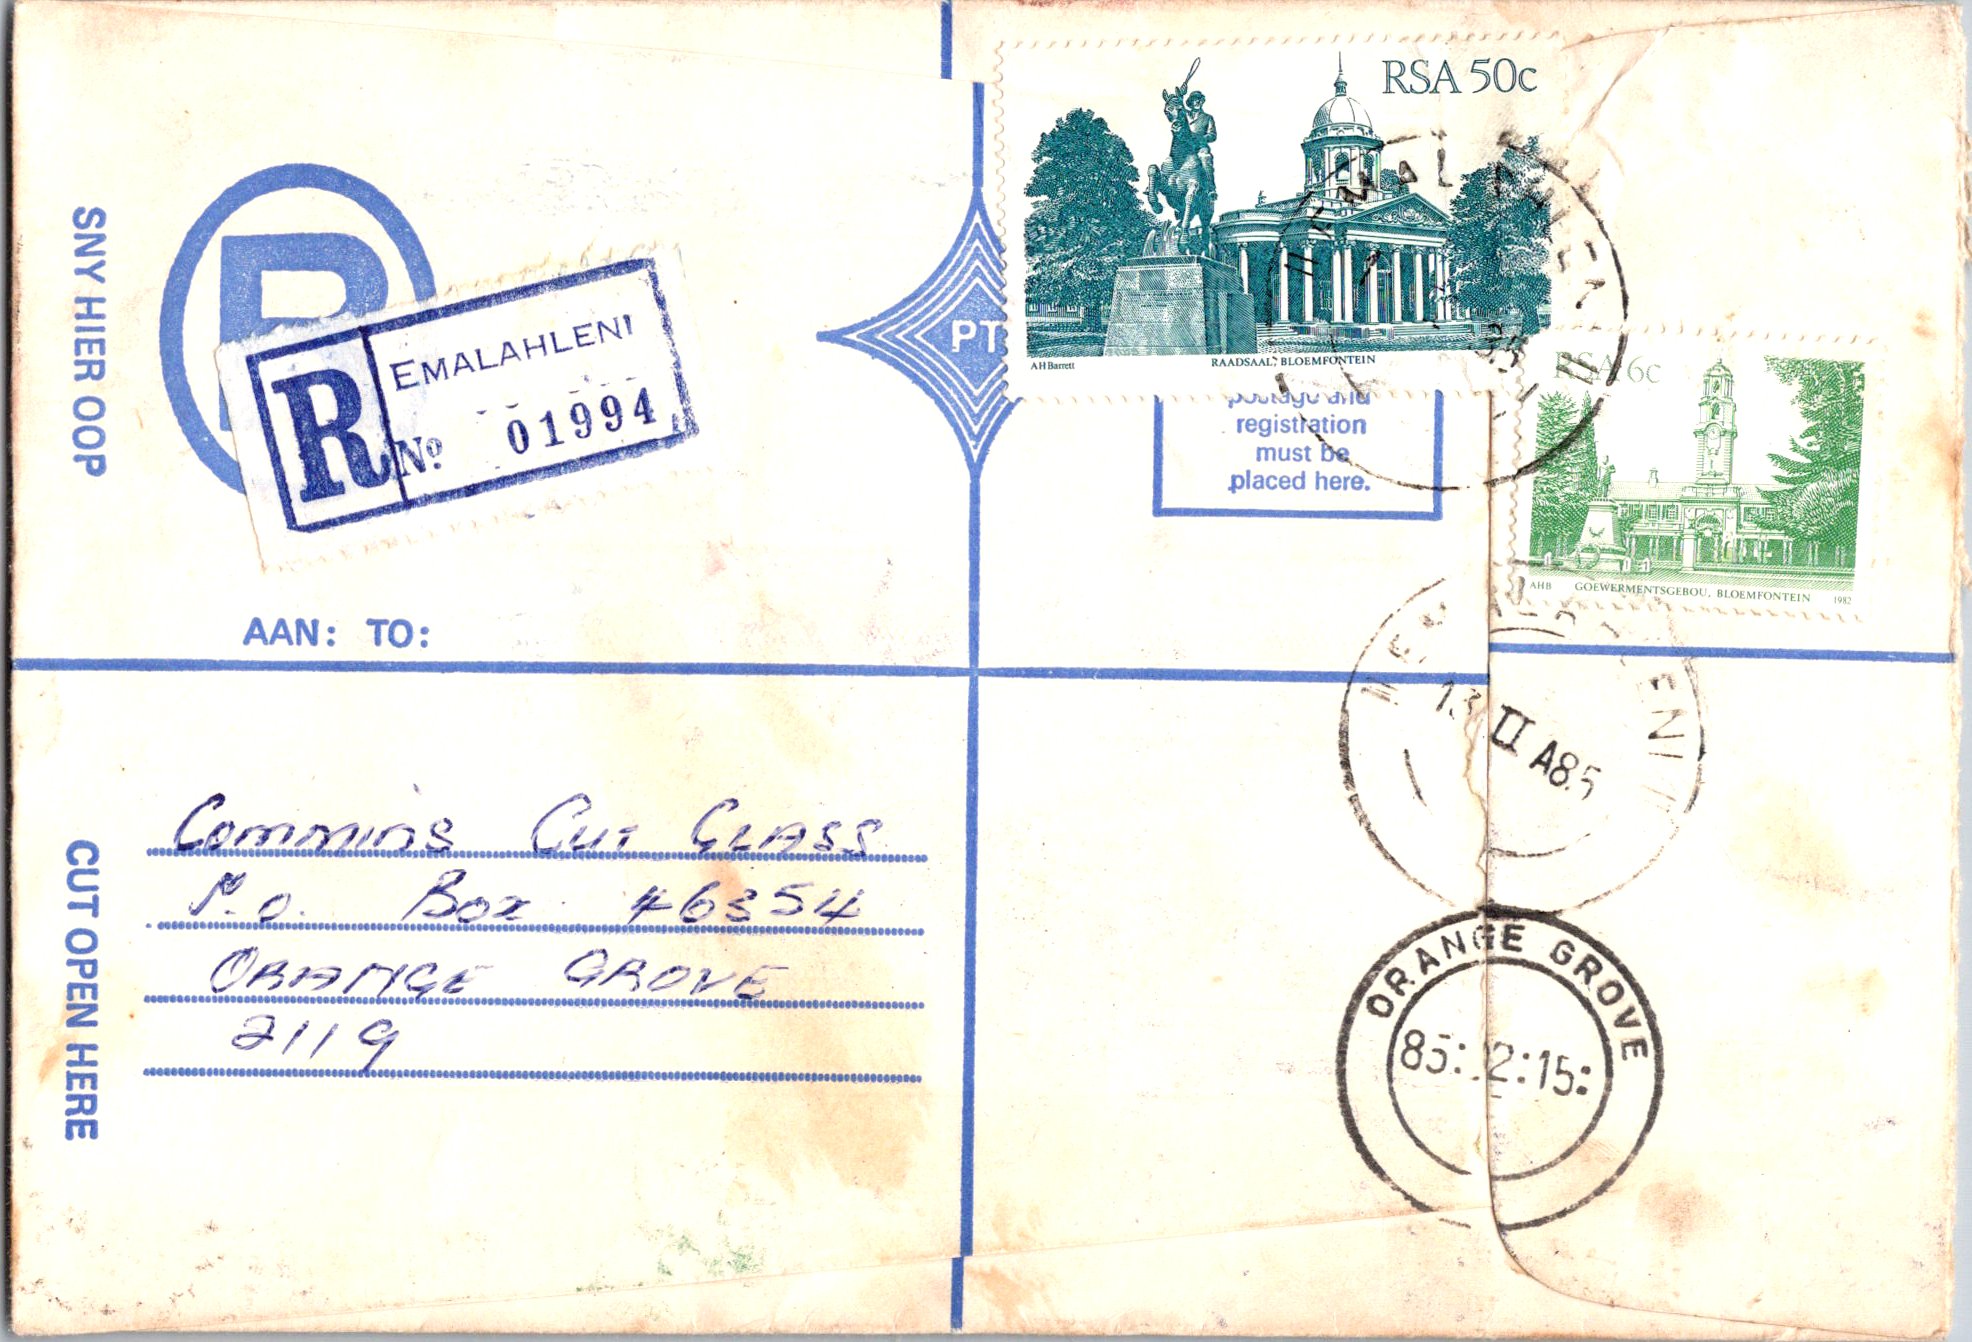 SNY HIER OOP
R
EMALAHLENI
No 01994
PT
RSA 50c
AH Barrett
RAADSAAL, BLOEMFONTEIN
postage and
registration
must be
placed here.
RSA 6c
AHB GOEWERMENTSGEBOU, BLOEMFONTEIN 1982
AAN: TO:
13 II A85
CUT OPEN HERE
Commins Cut Glass
P.O. Box 46354
ORANGE GROVE
2119
ORANGE GROVE
85: 2:15: